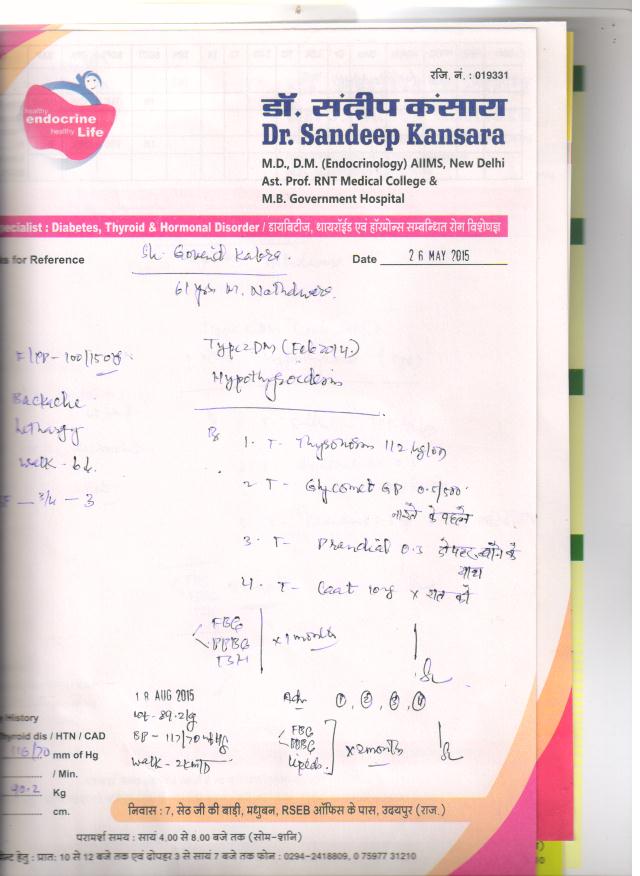 रजि. नं. : 019331
healthy
endocrine
healthy Life
डॉ. संदीप कंसारा
Dr. Sandeep Kansara
M.D., D.M. (Endocrinology) AIIMS, New Delhi
Ast. Prof. RNT Medical College &
M.B. Government Hospital
pecialist : Diabetes, Thyroid & Hormonal Disorder / डायबिटीज, थायरॉईड एवं हॉरमोन्स सम्बन्धित रोग विशेषज्ञ
ks for Reference
Sh. Govind
Date 26 MAY 2015
61 yrs M. Nathdwara.
Type 2 DM (Feb 2014.)
F/PP - 100/150
Hypothyroidism
Backache
Lethargy
Rx 1. T- Thyronorm 112 µg/
walk - 
2 T- Glycomet GP 0.5/500
नाश्ते के पहले
- 3/4 - 3
3. T- Prandial 0.3 दोपहर खाने के
साथ
4. T- Caat 10mg x रात को
FBG
PPBG x months
TSH
18 AUG 2015
Adv 1, 2, 3, 4
wt - 89.2 kg
BP - 117/70 mmHg
FBG
PPBG x 2 months
Lipids
walk - 2km/D
y History
hyroid dis / HTN / CAD
116/70 mm of Hg
/ Min.
90.2 Kg
cm.
निवास : 7, सेठ जी की बाड़ी, मधुबन, RSEB ऑफिस के पास, उदयपुर (राज.)
परामर्श समय : सायं 4.00 से 8.00 बजे तक (सोम-शनि)
मेन्ट हेतु : प्रात: 10 से 12 बजे तक एवं दोपहर 3 से सायं 7 बजे तक फोन : 0294-2418809, 0 75977 31210